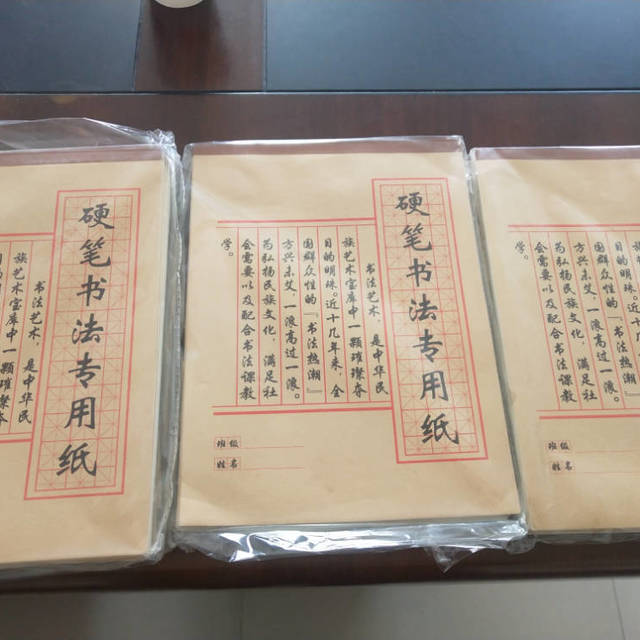 硬笔书法专用纸
书法艺术,是中华民
族艺术宝库中一颗璀璨夺
硬笔书法专用纸
书法艺术,是中华民
族艺术宝库中一颗璀璨夺
目的明珠近十几年来,全
国群众性的『书法热潮』
方兴未艾,一浪高过一浪。
为弘扬民族文化,满足社
会需要以及配合书法课教
学。
班级
姓名
国群众性的『书法热潮』
方兴未艾,一浪高过一浪。
为弘扬民族文化,满足社
会需要以及配合书法课教
学。
班级
姓名